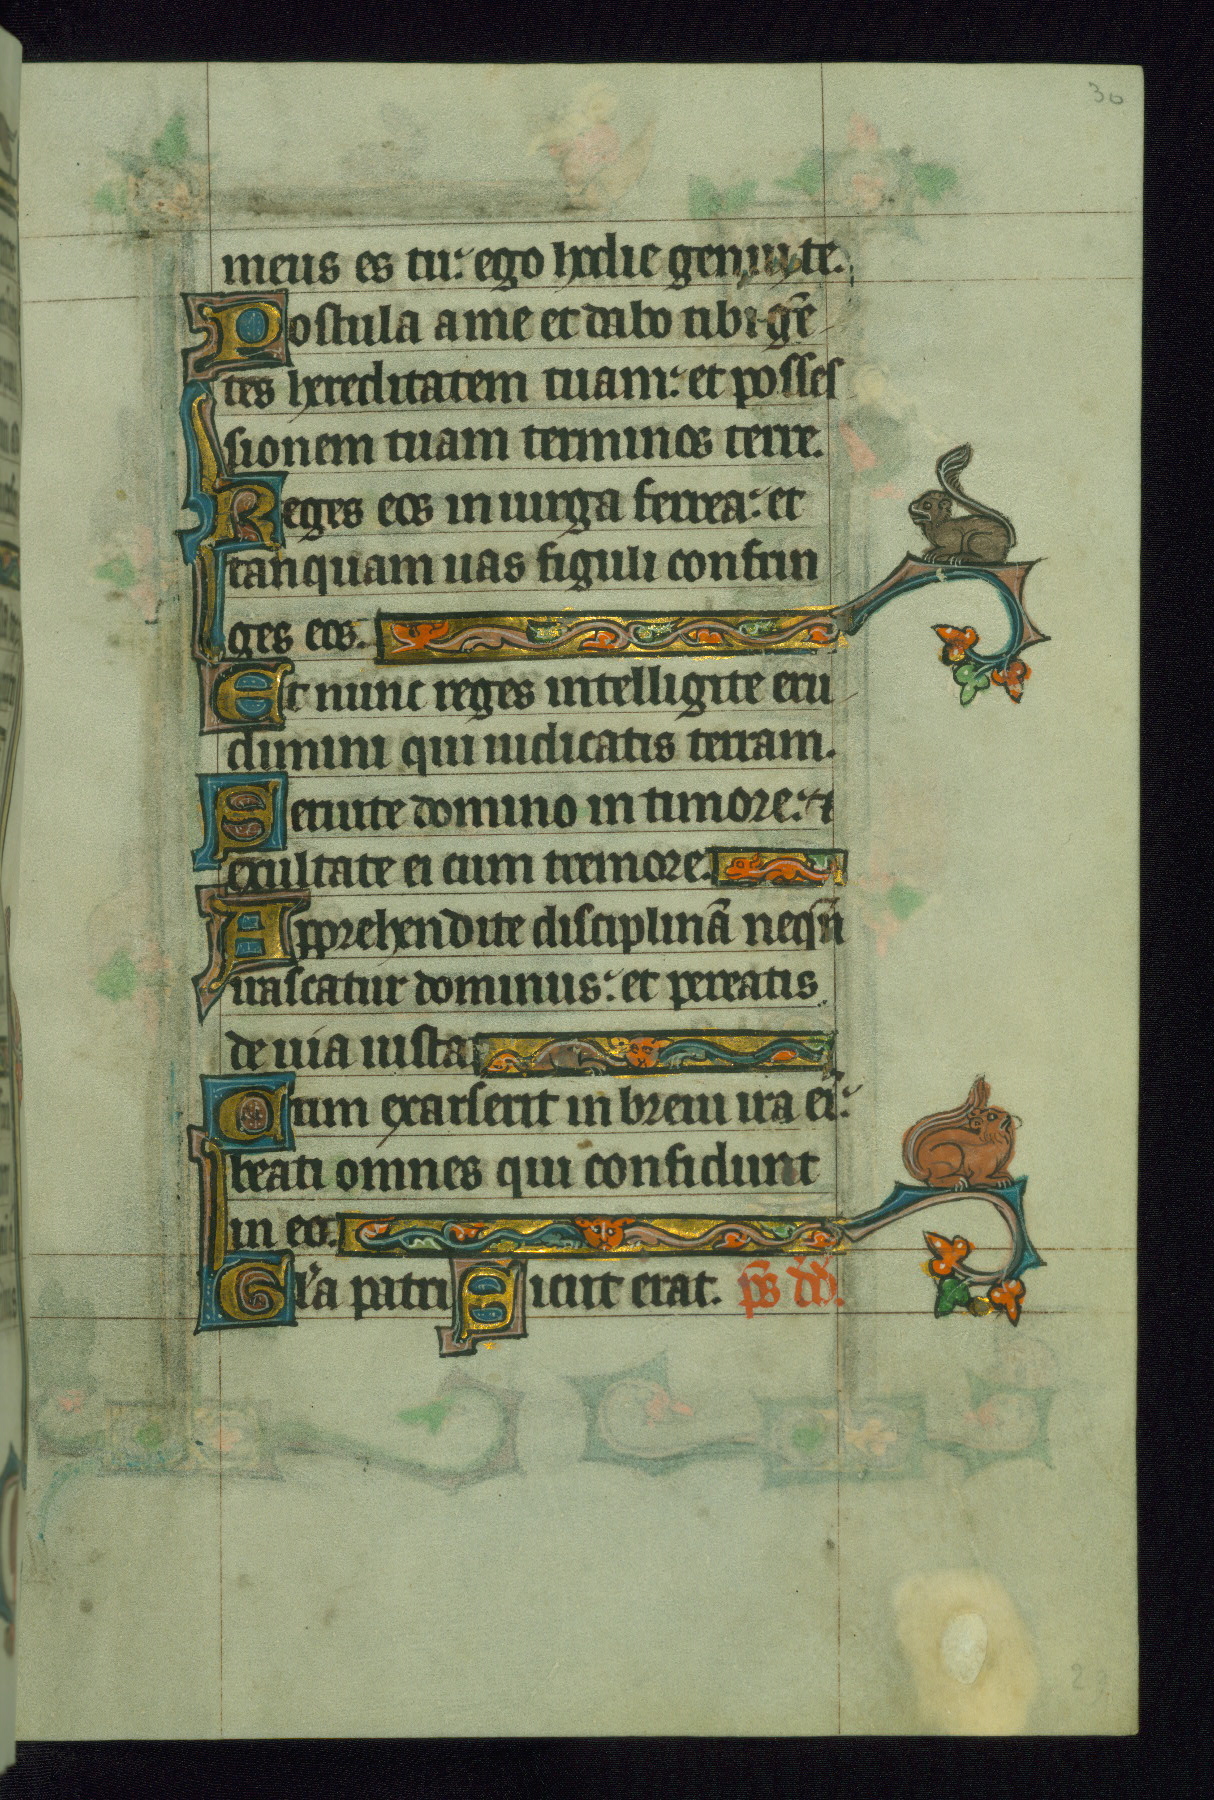 30
meus es tu: ego hodie genui te.
Postula a me et dabo tibi gē
tes hereditatem tuam: et posses
sionem tuam terminos terre.
Reges eos in uirga ferrea: et
tanquam uas figuli confrin
ges eos.
Et nunc reges intelligite eru
dimini qui iudicatis terram.
Seruite domino in timore: &
exultate ei cum tremore.
Apprehendite disciplinā neqn̄
irascatur dominus: et pereatis
de uia iusta
Cum exarserit in breui ira ei:
beati omnes qui confidunt
in eo.
Gl'a patri Sicut erat. p̄s dd̄.
29